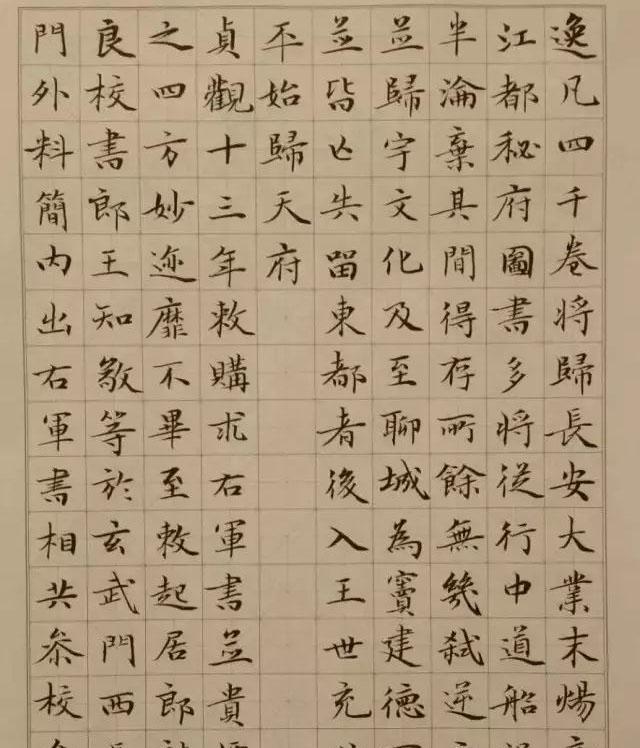 逸凡四千卷将歸長安大業末煬
江都秘府圖書多将從行中道船
半淪棄其間得存所餘無幾弑逆
並歸宇文化及至聊城為竇建德
並皆亡失留東都者後入王世充
平始歸天府
貞觀十三年敕購求右軍書並貴
之四方妙迹靡不畢至敕起居郎
良校書郎王知敬等於玄武門西
門外料簡内出右軍書相共叅校